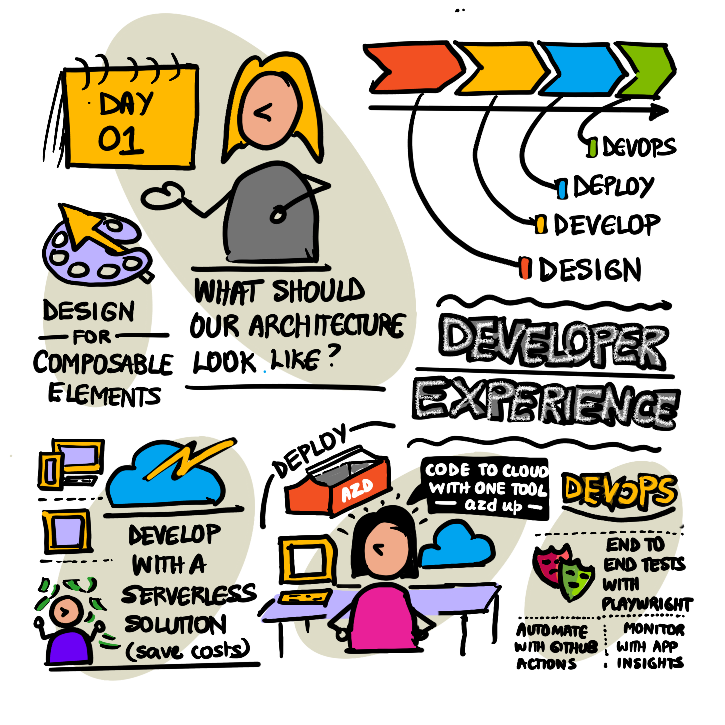 DAY
01
WHAT SHOULD
OUR ARCHITECTURE
LOOK LIKE?
DESIGN
FOR
COMPOSABLE
ELEMENTS
DEVOPS
DEPLOY
DEVELOP
DESIGN
DEVELOPER
EXPERIENCE
DEVELOP
WITH A
SERVERLESS
SOLUTION
(save costs)
DEPLOY
AZD
CODE TO CLOUD
WITH ONE TOOL
azd up
DEVOPS
END TO
END TESTS
WITH
PLAYWRIGHT
AUTOMATE
WITH GITHUB
ACTIONS
MONITOR
WITH APP
INSIGHTS